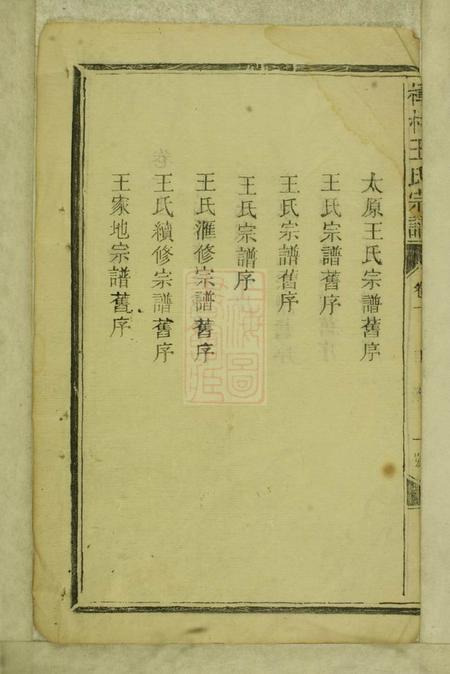 太原王氏宗譜舊序
王氏宗譜舊序
王氏宗譜舊序
王氏宗譜序
王氏滙修宗譜舊序
王氏續修宗譜舊序
王家地宗譜舊序
村王氏宗譜
卷一